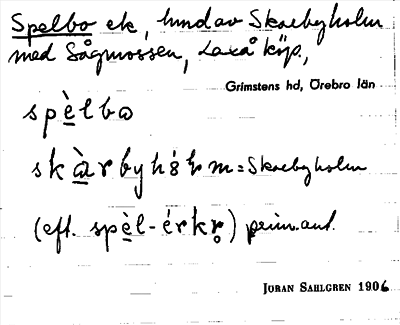 Spelbo ek, hmd av Skaebyholm
med Sågmossen, Laxå köp.,
Grimstens hd, Örebro län
spèlbo
skàrbyhòlm = Skaebyholm
(eft. spèl-érkr̥) prim. ant.
JÖRAN SAHLGREN 1906